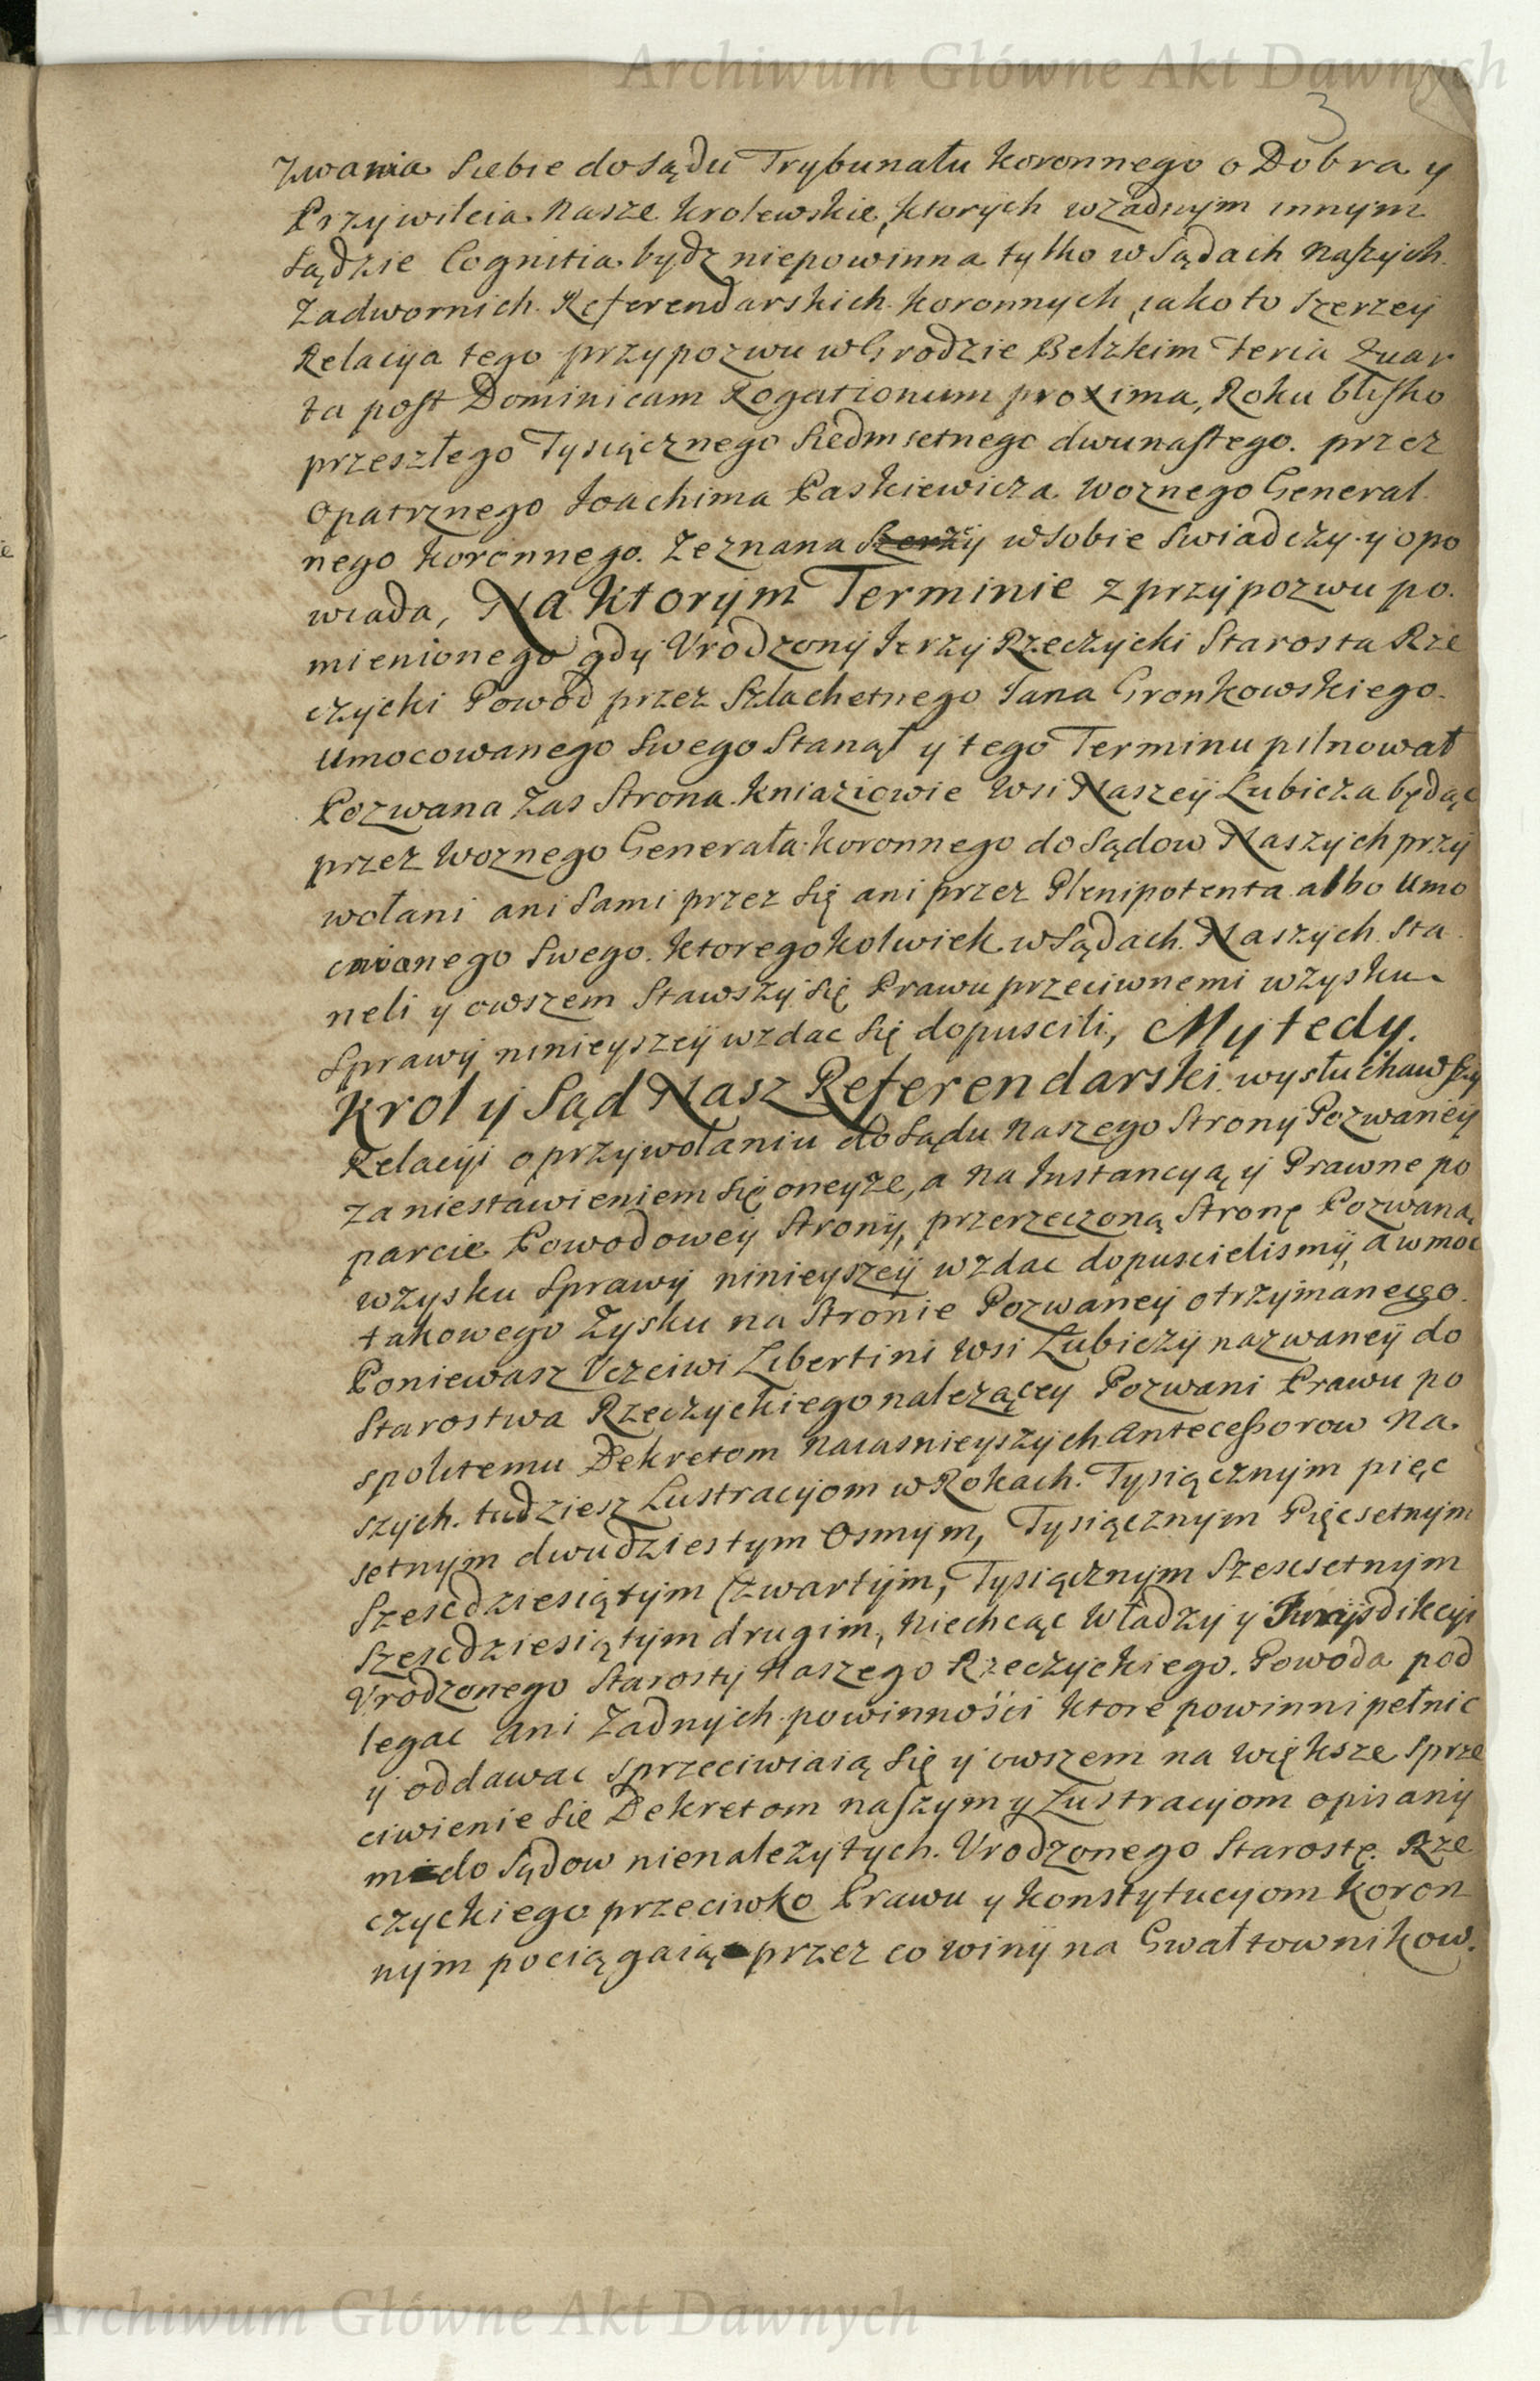 Archiwum Główne Akt Dawnych
3
zwania Siebie do Sądu Trybunału Koronnego o Dobra y
Przywileia Nasze Krolewskie, ktorych w zadnym innym
Sądzie Cognitia bydz niepowinna tylko w Sądach Naszych
Zadwornich Referendarskich Koronnych, iako to szerzey
Relacya tego przypozwu w Grodzie Belzkim Feria Quar
ta post Dominicam Rogationum proxima, Roku blisko
przeszłego Tysiącznego Siedmsetnego dwunastego. przez
Opatrznego Joachima Paskiewicza Woznego General
nego Koronnego. Zeznana w sobie Swiadczy y opo
wiada, Na Ktorym Terminie z przypozwu po
mienionego gdy Urodzony Jerzy Rzeczycki Starosta Rze
czycki Powod przez Szlachetnego Jana Gronkowskiego
Umocowanego Swego Stanął y tego Terminu pilnował
Pozwana Zas Strona Kniaziowie Wsi Naszey Lubicza będąc
przez Woznego Generała Koronnego do Sądow Naszych przy
wołani ani Sami przez Się ani przez Plenipotenta albo Umo
cowanego Swego. Ktoregokolwiek w Sądach Naszych Sta
neli y owszem Stawszy Się Prawu przeciwnemi w zysku
Sprawy ninieyszey wzdac Się dopuscili, My tedy.
Krol y Sąd Nasz Referendarski wysłuchawszy
Relacyi o przywołaniu do Sądu Naszego Strony Pozwaney
za niestawieniem Się oneyze, a na Instancyą y Prawne po
parcie Powodowey Strony, przerzeczoną Stronę Pozwaną
w zysku Sprawy ninieyszey wzdac dopuscielismy, a w moc
takowego Zysku na Stronie Pozwaney otrzymanego.
Poniewasz Uczciwi Libertini Wsi Lubiczy nazwaney do
Starostwa Rzeczyckiego nalezącey Pozwani Prawu po
spolitemu Dekretom Naiasnieyszych Antecessorow Na
szych. tudziesz Lustracyom w Rokach. Tysiącznym pięc
setnym dwudziestym Osmym, Tysiącznym Pięcsetnym
Szescdziesiątym Czwartym, Tysiącznym Szescsetnym
Szescdziesiątym drugim, niechcąc Władzy y Jurysdikcyi
Urodzonego Starosty Naszego Rzeczyckiego. Powoda pod
legac ani Zadnych powinności ktore powinni pełnic
y oddawac sprzeciwiaią Się y owszem na większe sprze
ciwienie Się Dekretom naszym y Lustracyom opisany
m do Sądow nienalezytych. Urodzonego Starostę Rze
czyckiego przeciwko Prawu y Konstytucyom Koron
nym pociągaią przez co winy na Gwałtownikow.
Archiwum Główne Akt Dawnych